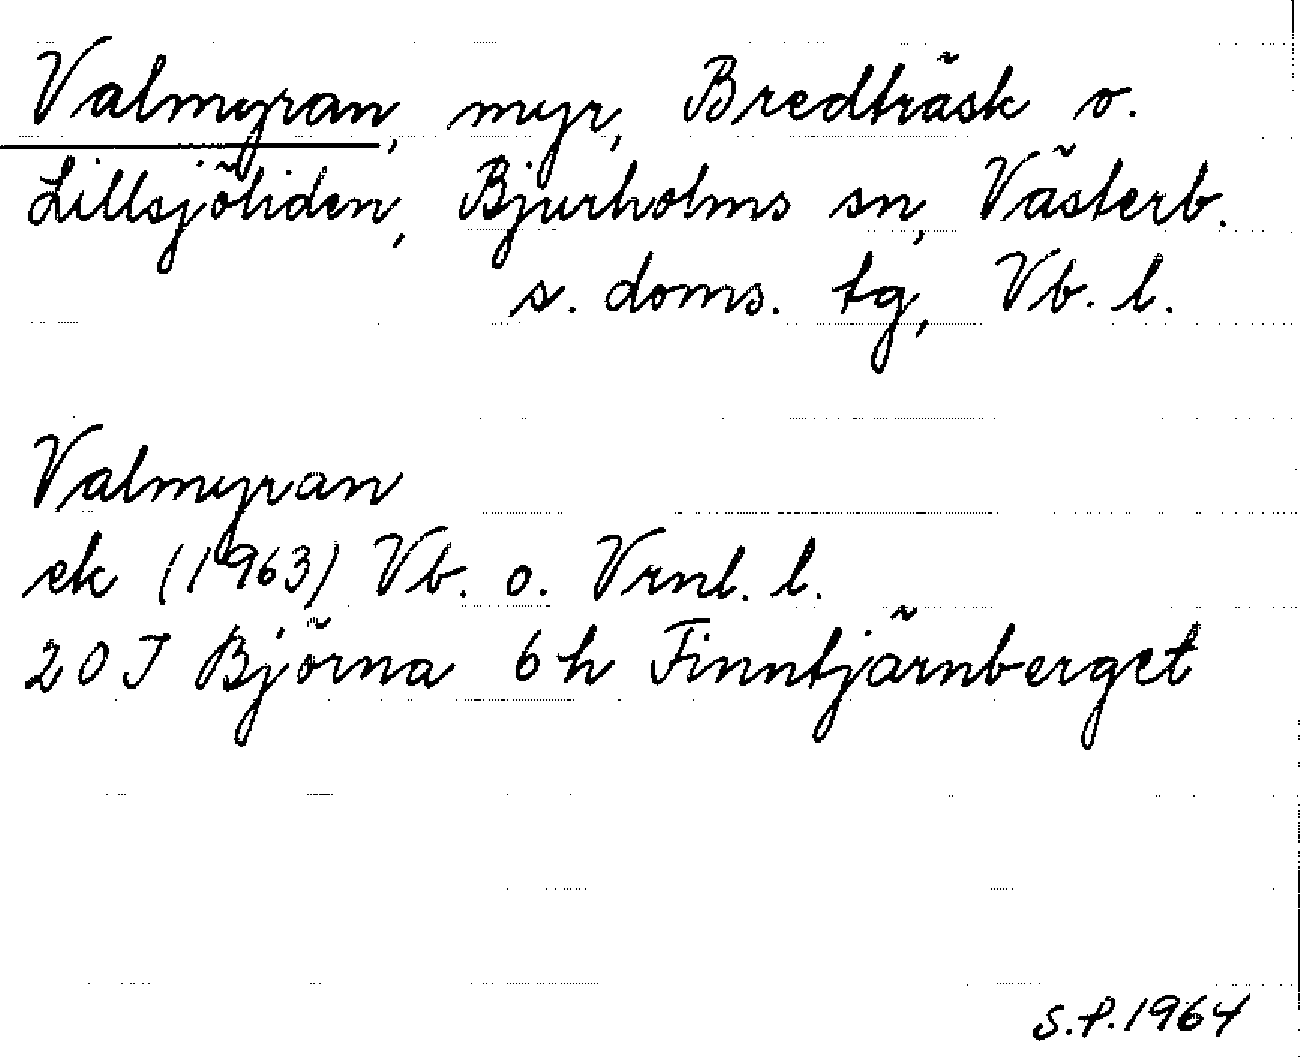 Valmyran, myr, Bredträsk o.
Lillsjöliden, Bjurholms sn, Västerb.
s. doms. tg, Vb. l.
Valmyran
ek (1963) Vb. o. Vrnl. l.
20 J Björna 6 h Finntjärnberget
S.P. 1964